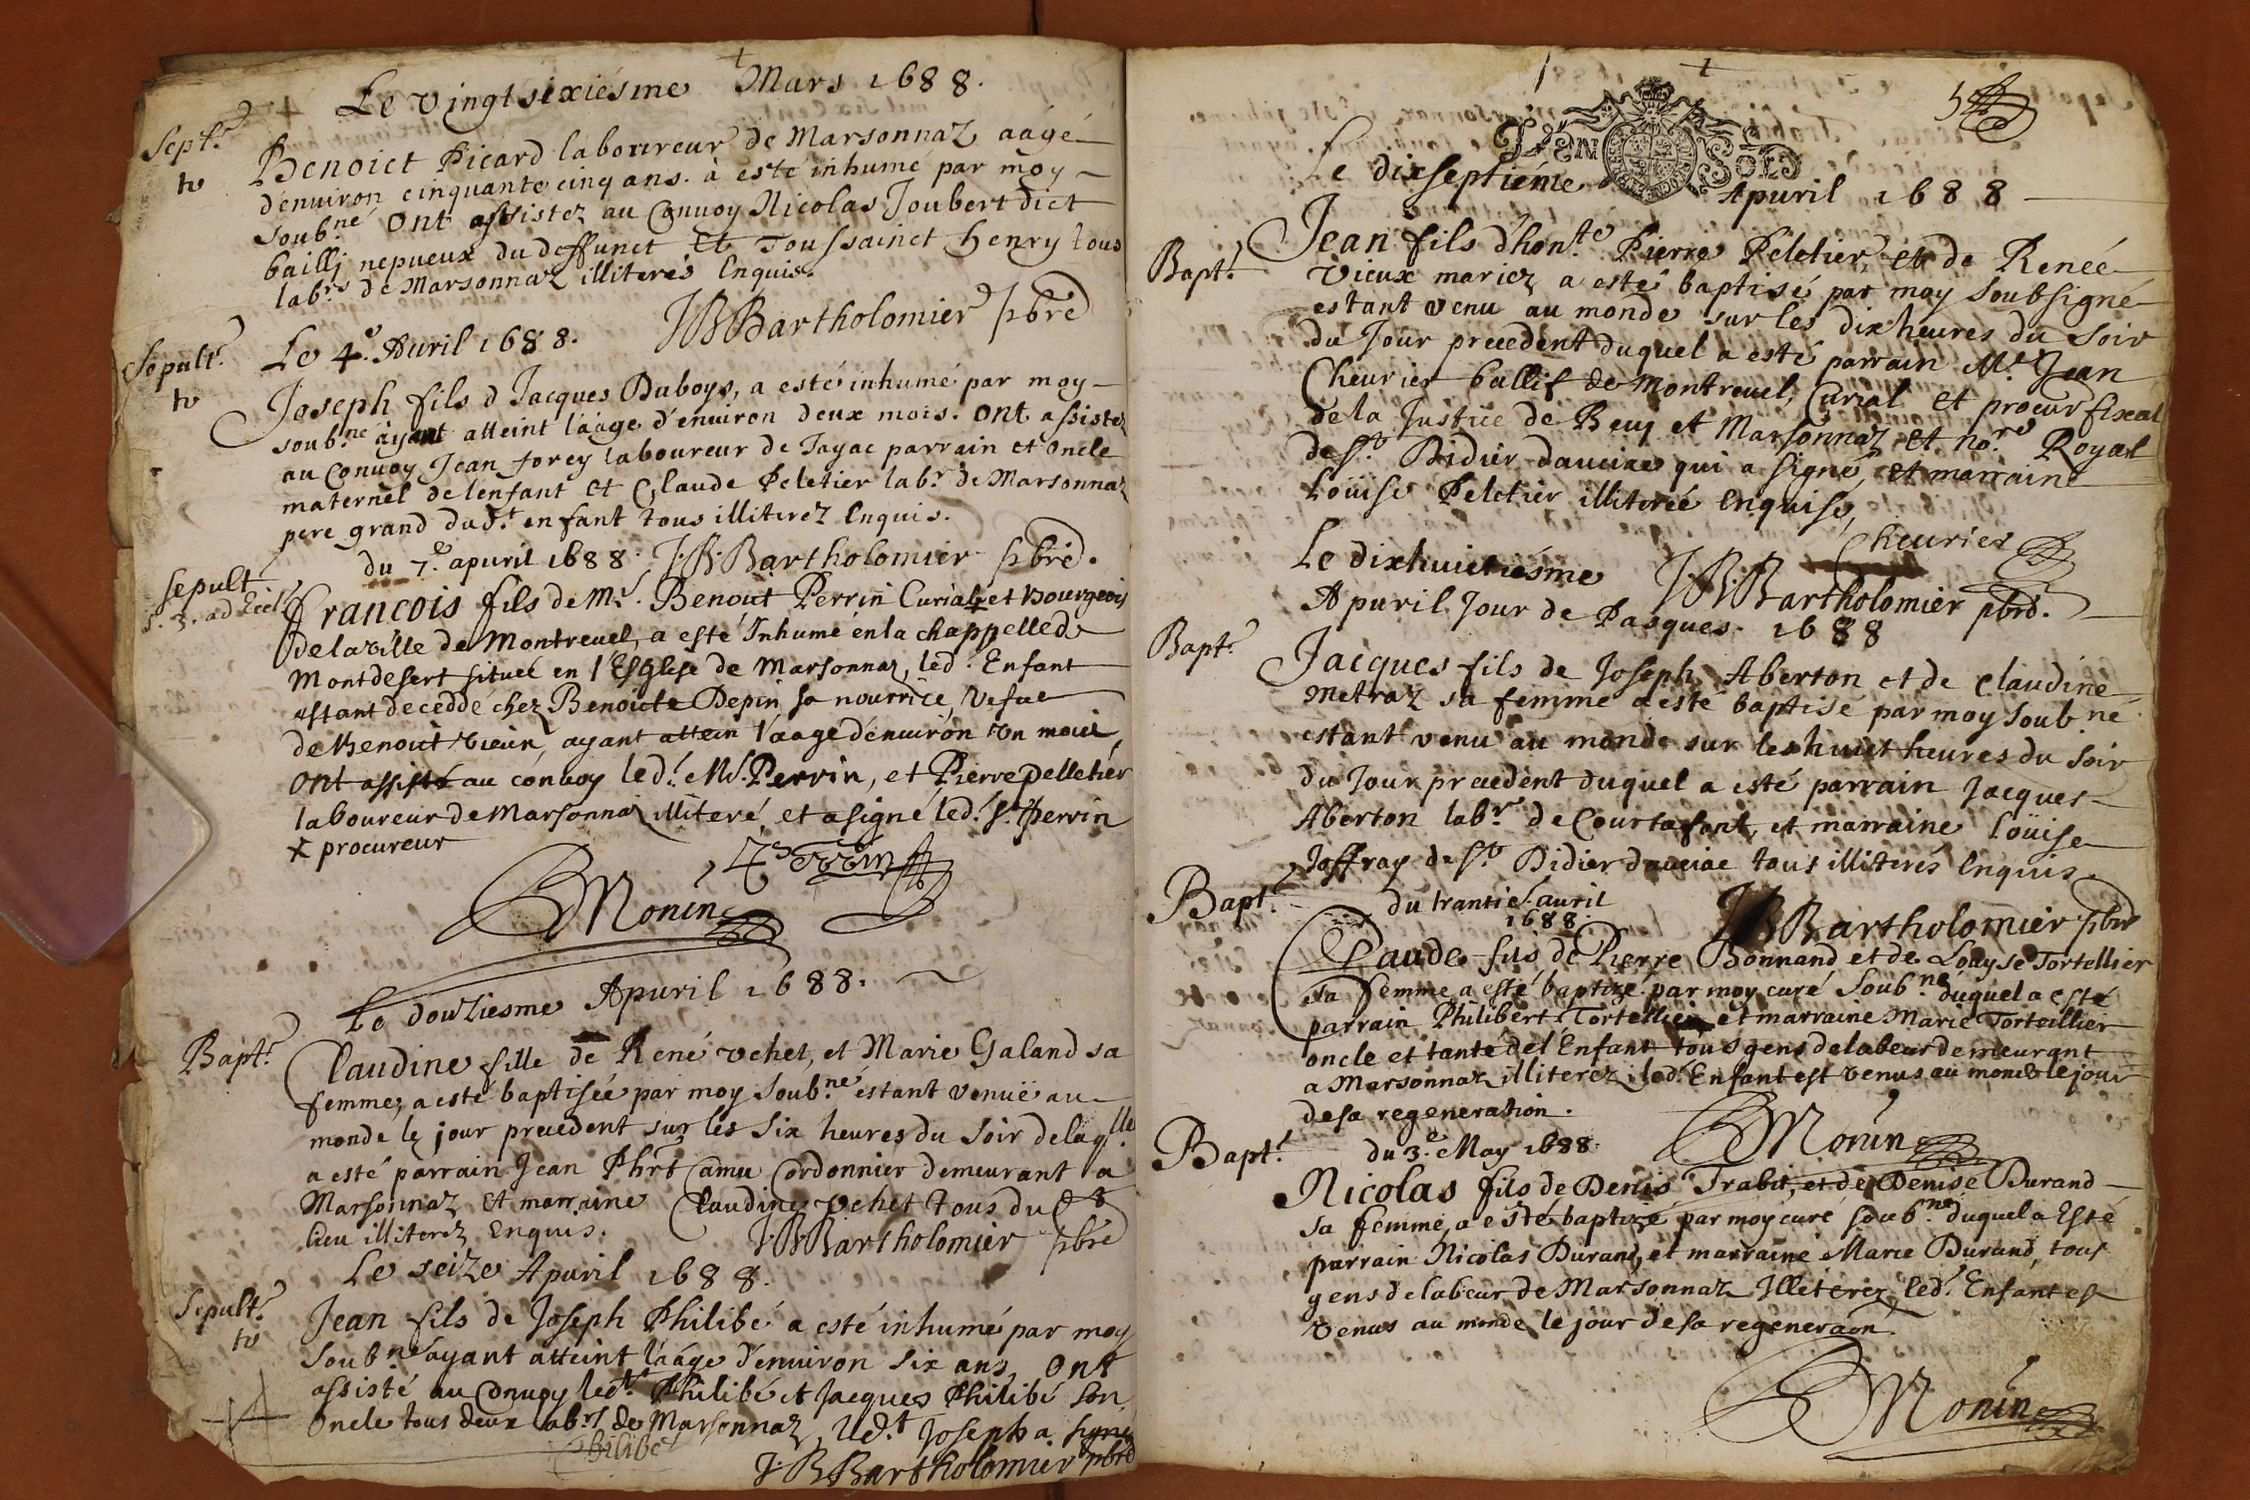 Le vingtsixiésme Mars 1688.
Sept.r
Benoict Picard laboureur de Marsonnaz aagé
to
d'enuiron cinquante cinq ans. à esté inhumé par moy
soub.né ont assistez au Conuoy Nicolas Joubert dict
bailli nepueux du deffunct et Toussainct henry tous
lab.rs de Marsonnaz illiterés Enquis.
JBBartholomier pbre
Sepult.r
to
Le 4.e Auril 1688.
Joseph fils d Jacques Duboys, a esté inhumé par moy
soub.ne ayant atteint l'aage d'enuiron deux mois. ont assistez
au Conuoy Jean forey laboureur de Jayac parrain et oncle
maternel de lenfant et Claude Peletier lab.r de Marsonnaz
pere grand dud.t enfant tous illiterez Enquis.
du 7.e apuril 1688. J.B.Bartholomier pbre.
Sepult
Francois fils de M.e Benoit Perrin Curial et bourgeois
de la ville de Montreuel, a esté Inhumé en la chappelle de
Montdesert située en l'Esglise de Marsonnaz, led. Enfant
estant deceddé chez Benoicte Depin sa nourrice, vefue
de Benoit vieux, ayant attein l'aage d'enuiron un mois,
ont assisté au conuoy led.t M.e Perrin, et Pierre pelletier
laboureur de Marsonnaz illiteré, et a signé led.t S.r Perrin
x procureur
Perrin
Monin
Le douziesme Apuril 1688.
Bapt.r
Claudine fille de René vehet, et Marie Galand sa
femme, a esté baptisée par moy soub.né éstant venuë au
monde le jour precedent sur les six heures du soir delaq.lle
a esté parrain Jean Phrt Camu Cordonnier demeurant a
Marsonnaz et marraine Claudine vehet tous du d
lieu illiterez Enquis.
J.BBartholomier pbre
Le seize Apuril 1688.
Sepult.r
to
Jean fils de Joseph Philibé a esté inhumé par moy
soub.né ayant atteint l'aage d'enuiron six ans, ont
assisté au Conuoy led.t Philibé et Jacques Philibé son
oncle tous deux lab.rs de Marsonnaz, led.t Joseph a signé
Philibé
J.BBartholomier pbre
GEN SOLS
Le dixseptiéme Apuril 1688
Bapt.r
Jean fils d'hon.te Pierre Peletier, et de Reneé
vieux mariez a esté baptisé par moy soubsigné
estant venu au monde sur les dix heures du soir
du Jour precedent duquel a esté parrain M.e Jean
Cheurier ballif de Montreuel, Curial et procur fiscal
de la Justice de Beuy et Marsonnaz et no.re Royal
de S.t Didier dauciae qui a signé, et marraine
Loüise Peletier illiterée Enquise,
Cheurier
Le dixhuictiésme
J.B.Bartholomier pbre.
Apuril Jour de Pasques. 1688
Bapt.r
Jacques fils de Joseph Aberton et de Claudine
Metraz sa femme a esté baptisé par moy soub.né
estant venu au monde sur les huict heures du soir
du Jour precedent duquel a esté parrain Jacques
Aberton lab.r de Courtafont, et marraine Loüise
Joffray de S.t Didier dauciae tous illiterés Enquis.
Bapt.r
du trantie.e auril
1688.
JBBartholomier pbre
Claude fils de Pierre Bonnand et de Louyse Tortellier
sa femme a esté baptizé par moy curé soub.né duquel a esté
parrain Philibert Tortellier et marraine Marie Torteillier
oncle et tante de l'Enfant tous gens de labeur demeurant
a Marsonnaz illiterez, led.t Enfant est venus au monde le jour
de sa regeneration.
Monin
Bapt.r
du 3.e May 1688.
Nicolas fils de Denis Trabit, et de Denise Durand
sa femme, a esté baptizé par moy curé soub.né duquel a Esté
parrain Nicolas Durand, et marraine Marie Durand, tous
gens de labeur de Marsonnaz Illiterez, led.t Enfant est
venus au monde le jour de sa regeneraon.
Monin